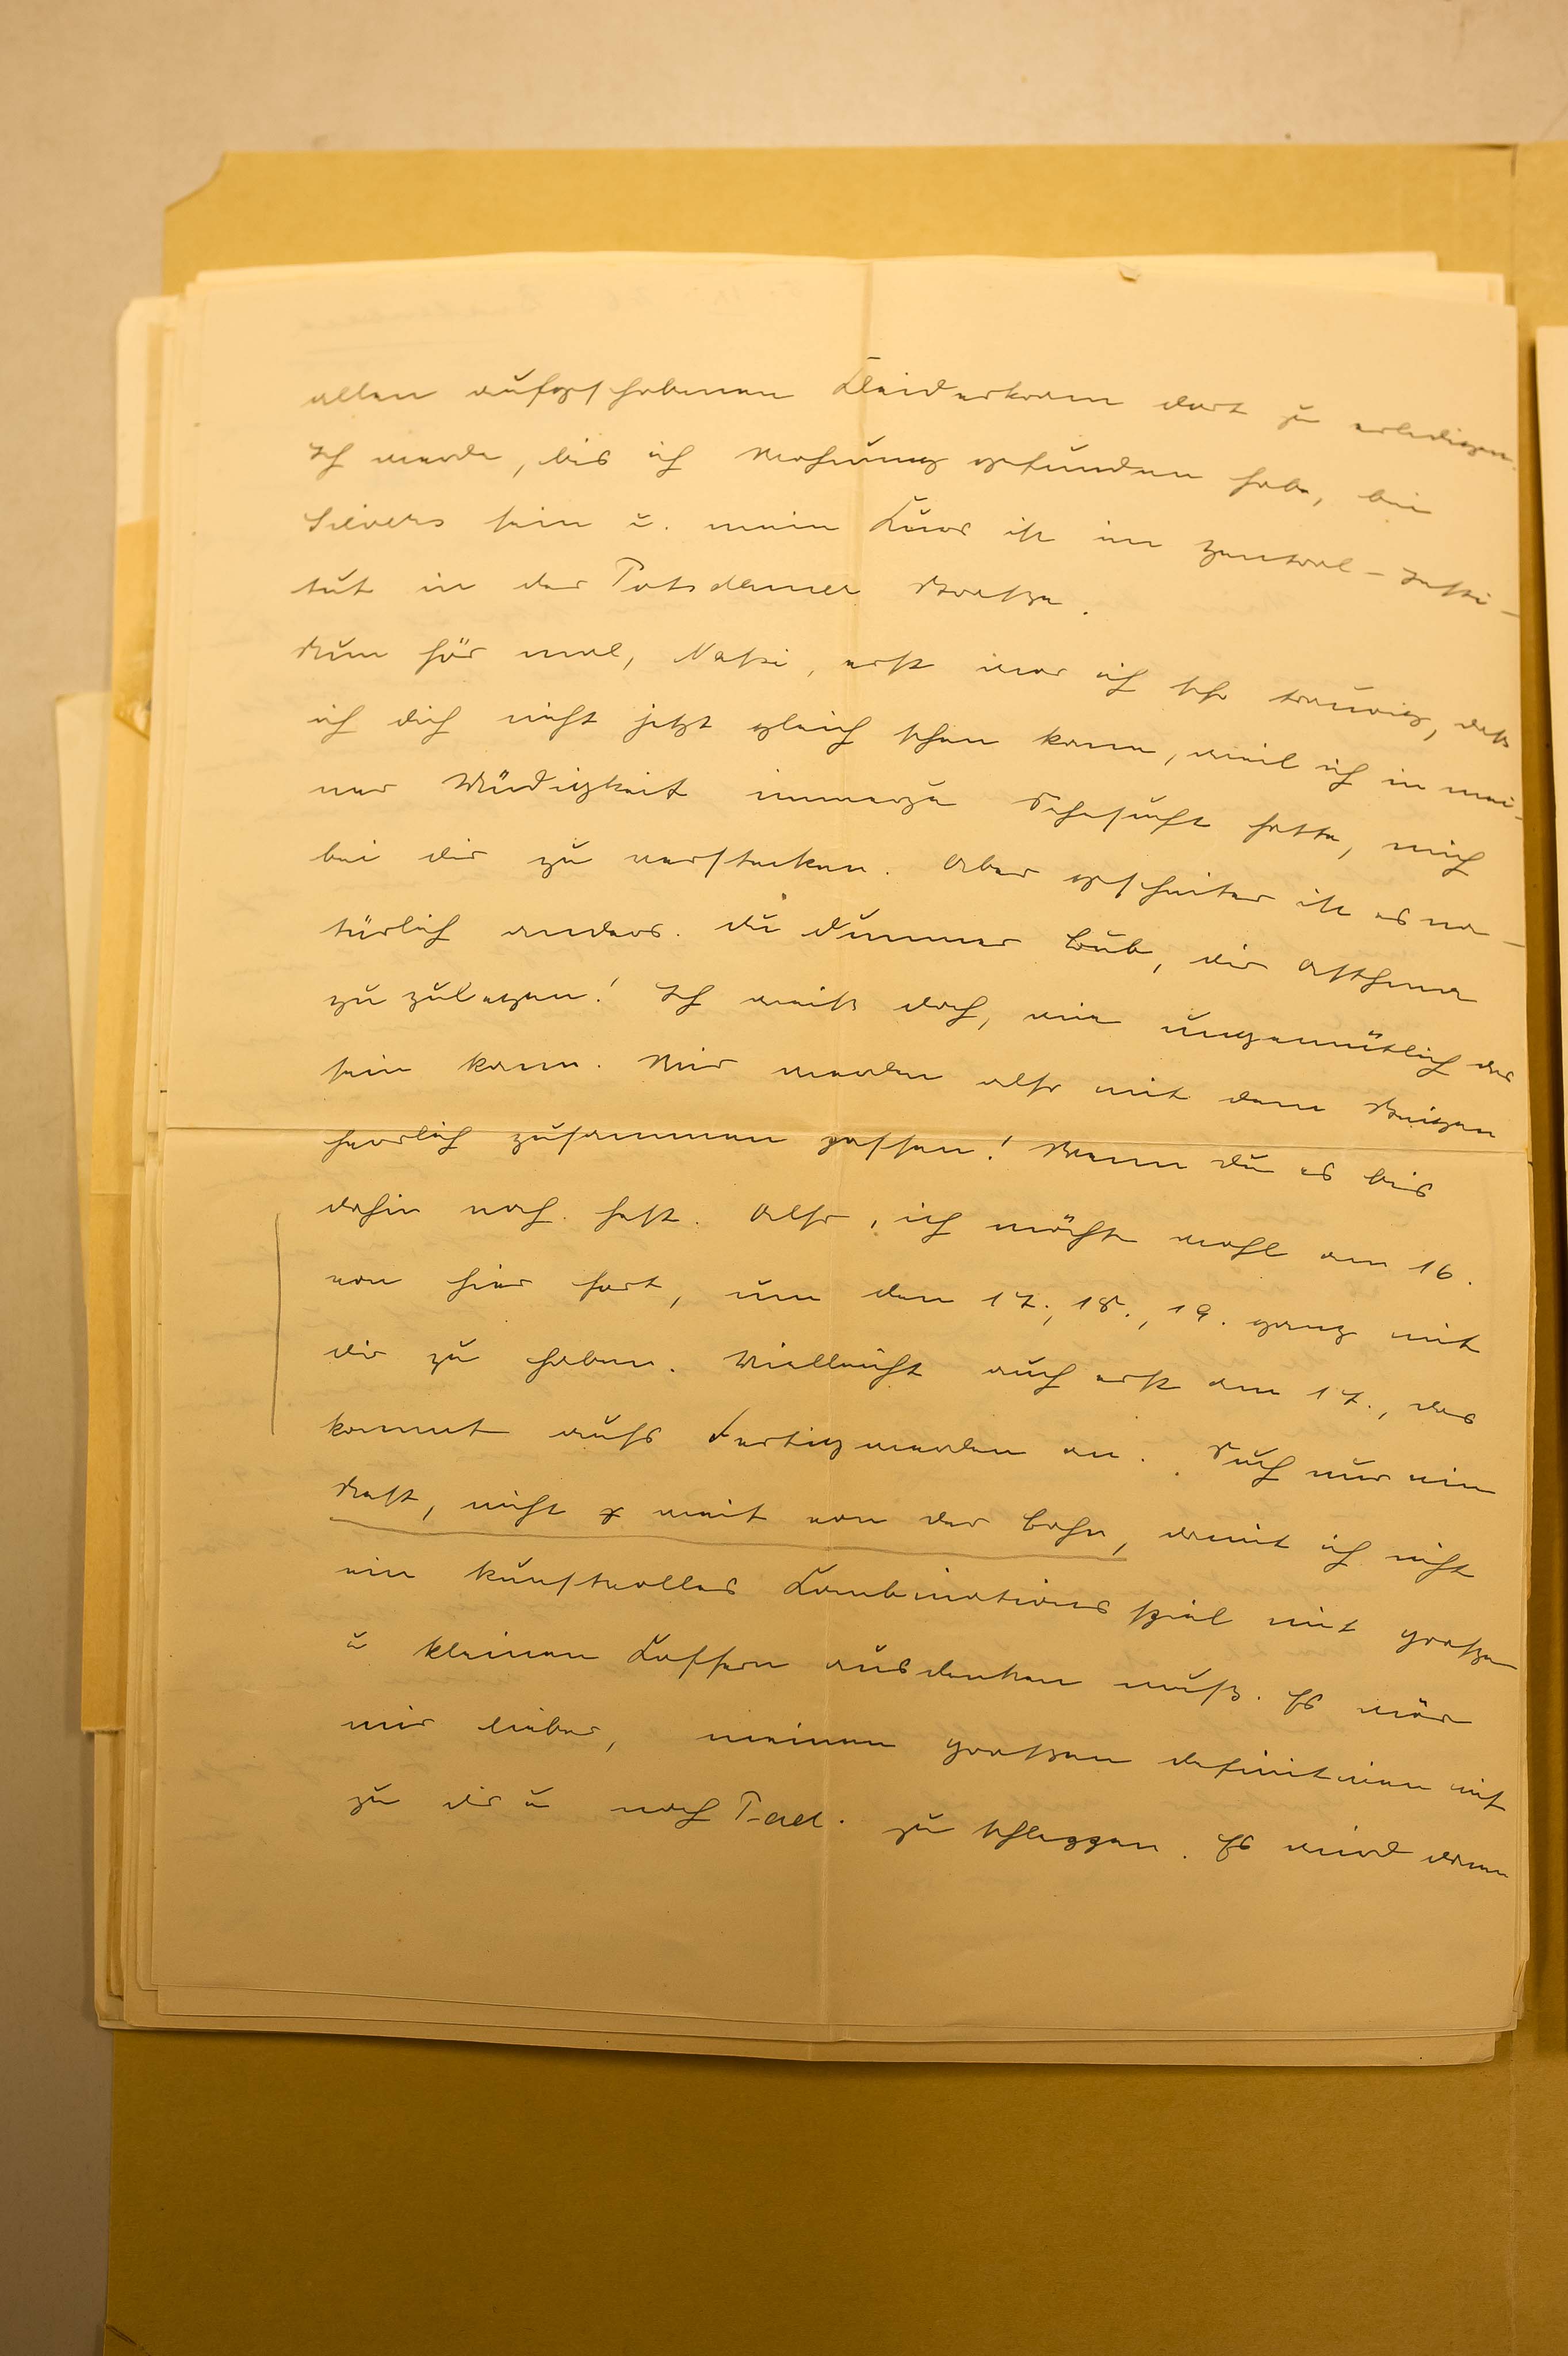 allen aufgeschobenen Kleiderkram dort zu erledigen.
Ich werde, bis ich Wohnung gefunden habe, bei
Sievers sein u. mein Kurs ist im Zentral-Insti-
tut in der Potsdamer Strasse.
Nun hör mal, erst war ich sehr traurig, dass
ich dich nicht jetzt gleich sehen kann, weil ich in mei-
ner Müdigkeit immerzu Sehnsucht hatte, mich
bei dir zu verstecken. Aber gescheiter ist es na-
türlich anders. Du dummer Bub, dir Asthma
zuzulegen! Ich weiss doch, wie ungemütlich das
sein kann. Wir werden also mit dem Steigen
herrlich zusammen passen! Wenn du es bis
dahin noch hast. Also, ich möchte wohl am 16.
von hier fort, um den 17., 18., 19. ganz mit
dir zu haben. Vielleicht auch erst am 17., das
kommt aufs Fertigwerden an. Such nur ein
Nest, nicht weit von der Bahn, damit ich nicht
ein kunstvolles Kombinationsspiel mit grossen
u kleinen Koffern ausdenken muß. Es wär
mir lieber, meinen grossen definitiven mit
zu dir u nach zu schleppen. Es wird dann